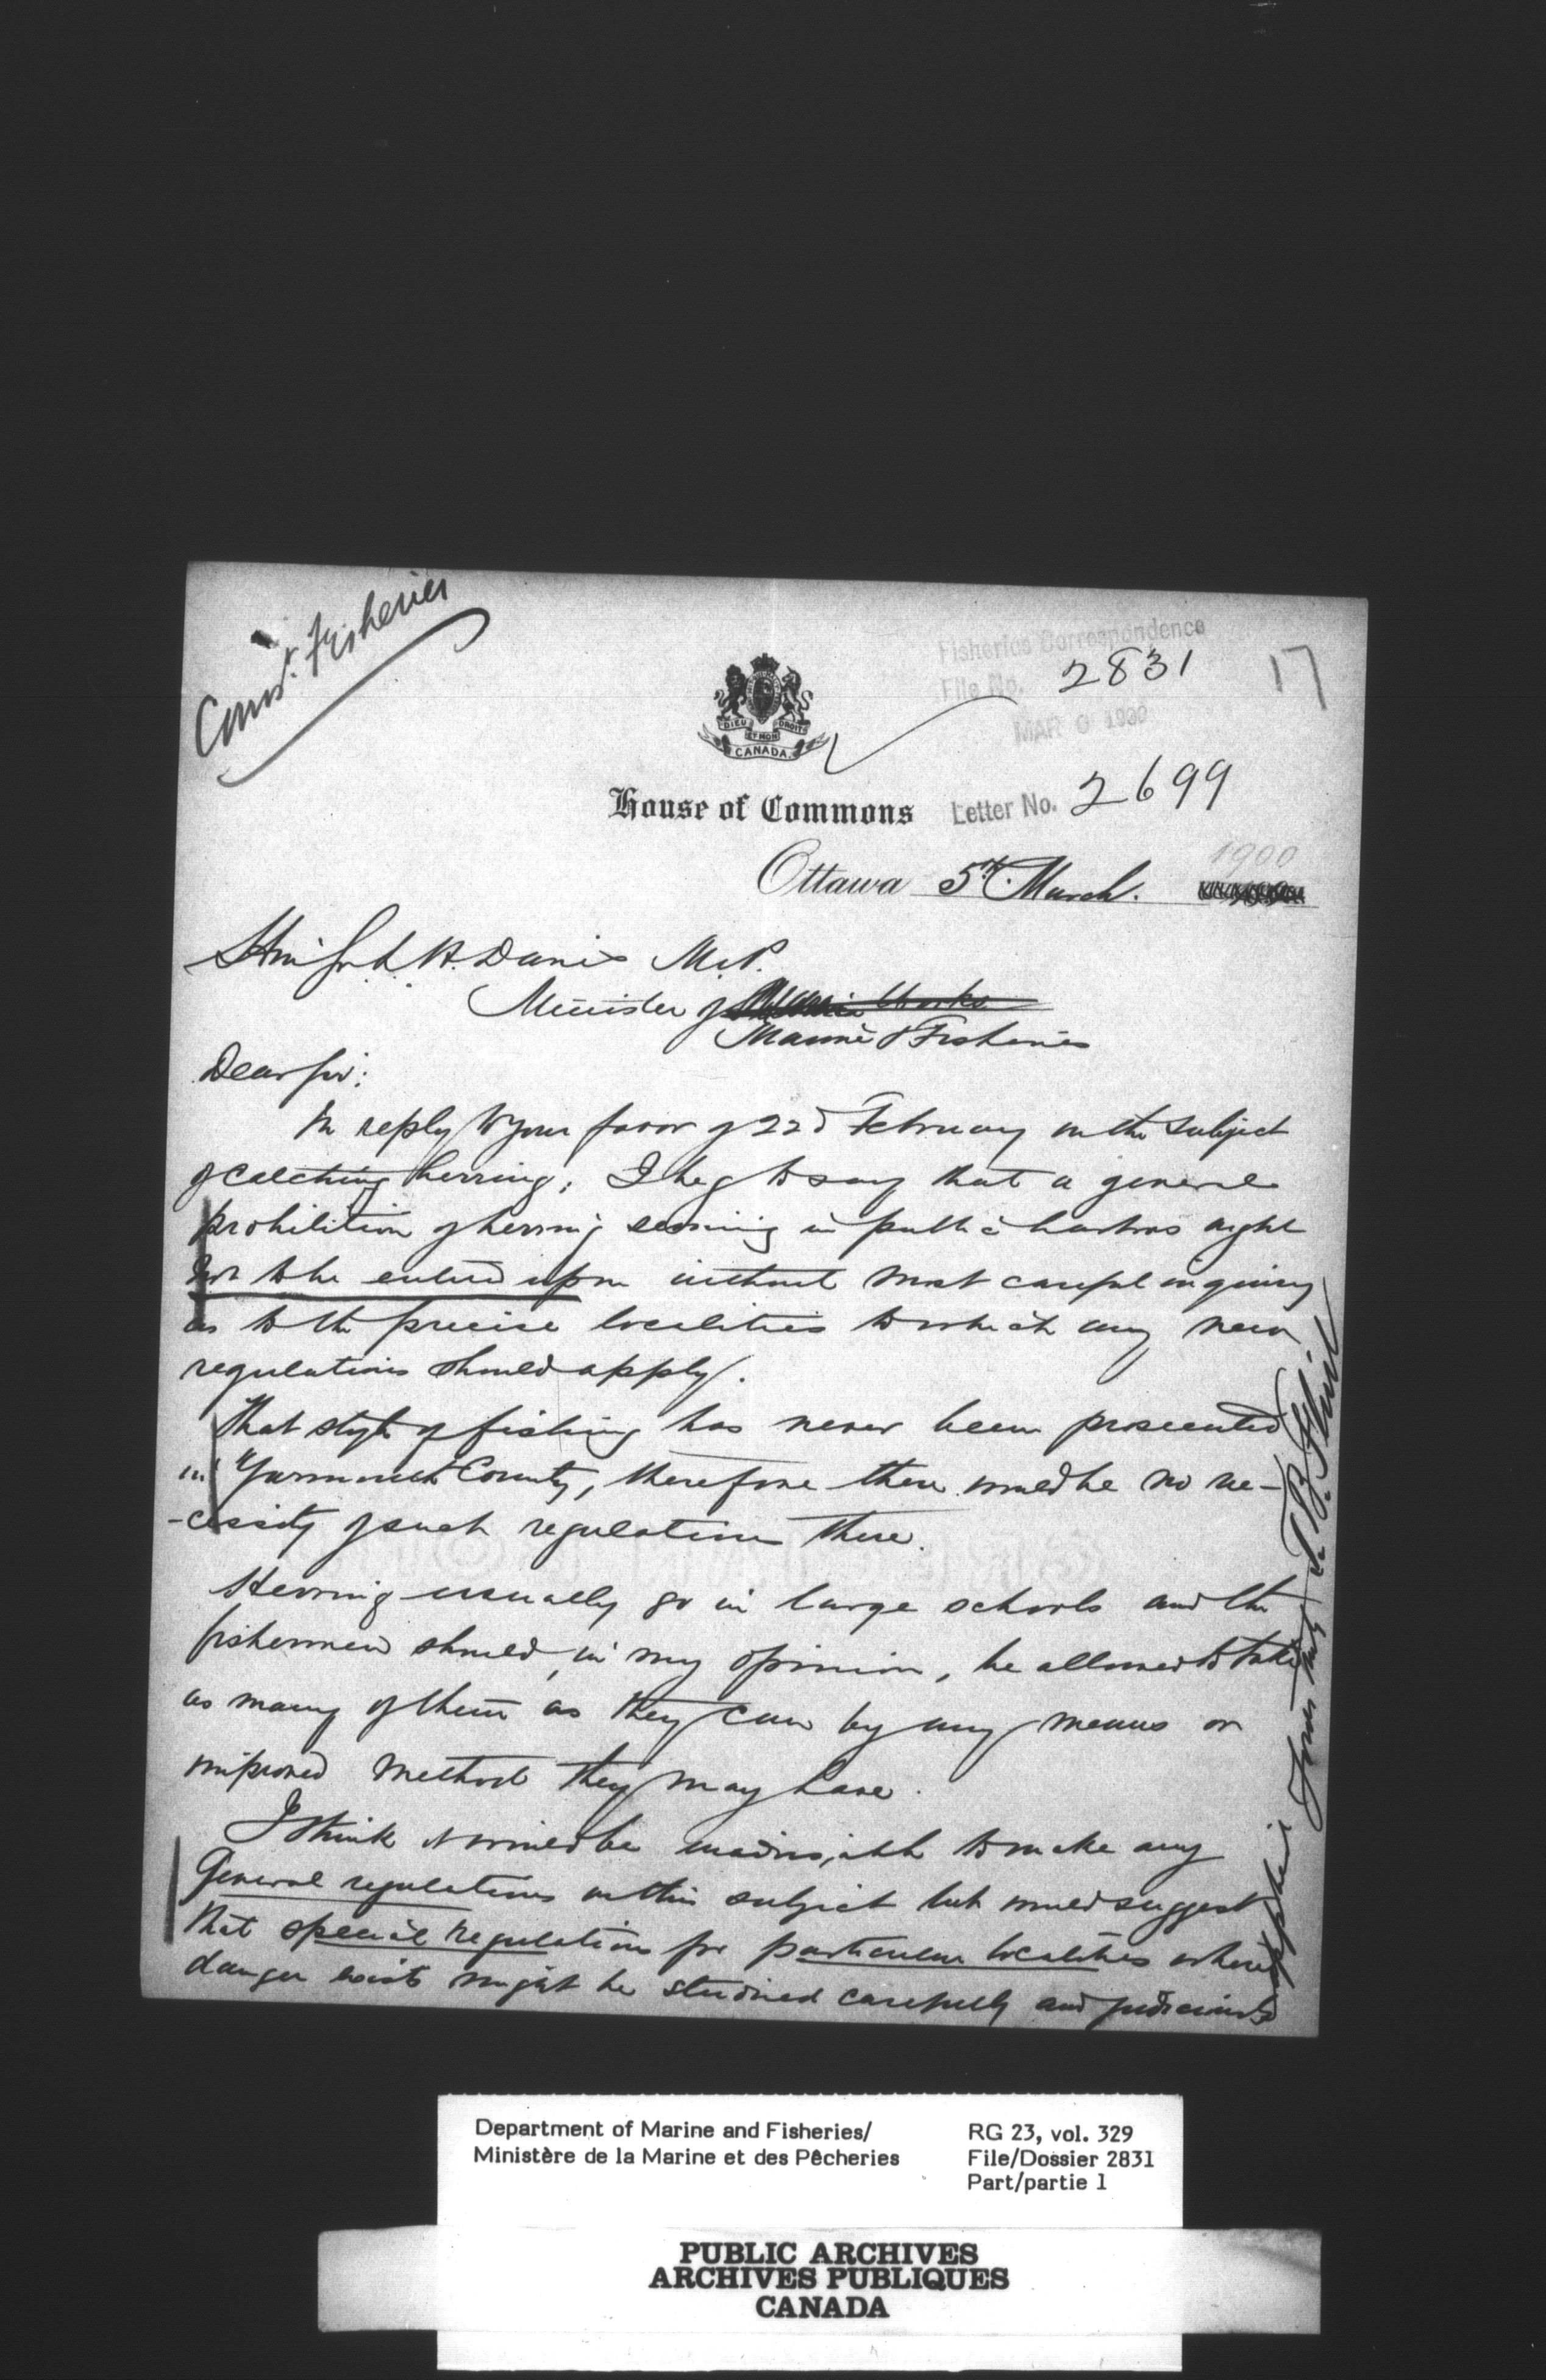 Comr. Fisheries
Fisheries Correspondence
File No. 2831
17
MAR 6 1900
DIEU ET MON DROIT
CANADA
House of Commons
Letter No. 2699
1900
Ottawa 5th. March.
Hon Sir L. H. Davies M.P.
Minister of Public Works
Marine & Fisheries
Dear Sir:
In reply to your favor of 22d February on the subject
of catching herring, I beg to say that a general
prohibition of herring seining in public harbors ought
not to be entered upon without most careful inquiry
as to the precise localities to which any new
regulations should apply.
That style of fishing has never been prosecuted
in Yarmouth County, therefore there would be no ne-
-cessity of such regulations there.
Herring usually go in large schools and the
fishermen should, in my opinion, be allowed to take
as many of them as they can by any means or
improved method they may have.
I think it would be inadvisable to make any
General regulations on this subject but would suggest
that special regulations for particular localities where
danger exists might be studied carefully and judiciously
applied Yours truly T. B. Flint
Department of Marine and Fisheries/
Ministère de la Marine et des Pêcheries
RG 23, vol. 329
File/Dossier 2831
Part/partie 1
PUBLIC ARCHIVES
ARCHIVES PUBLIQUES
CANADA